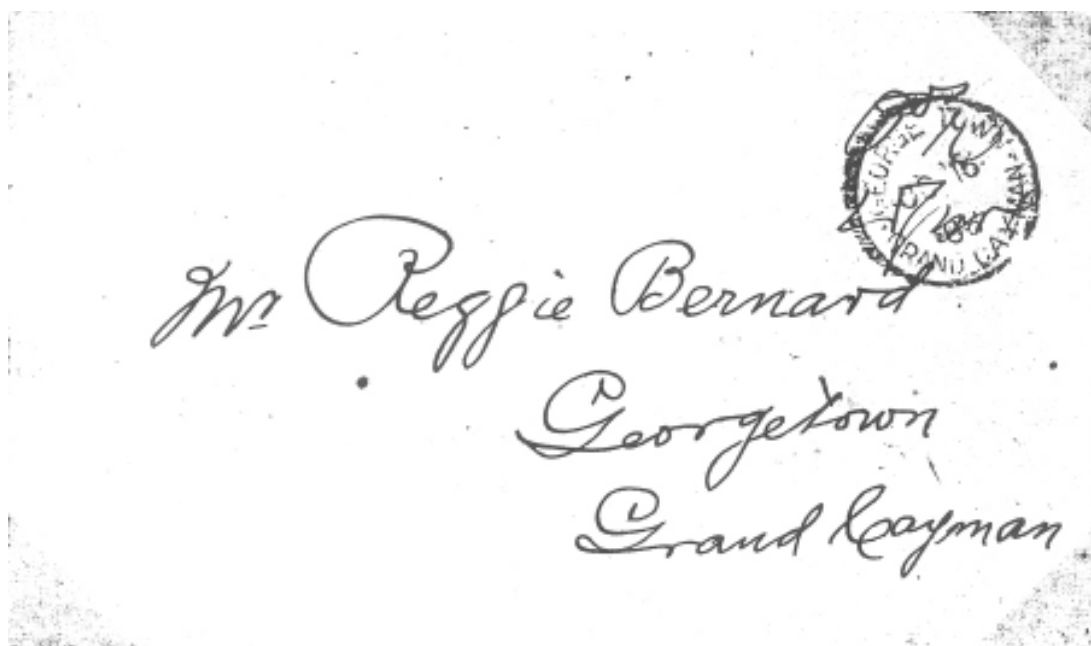 GEORGE TOWN
GRAND CAYMAN
Mr Reggie Bernard
Georgetown
Grand Cayman